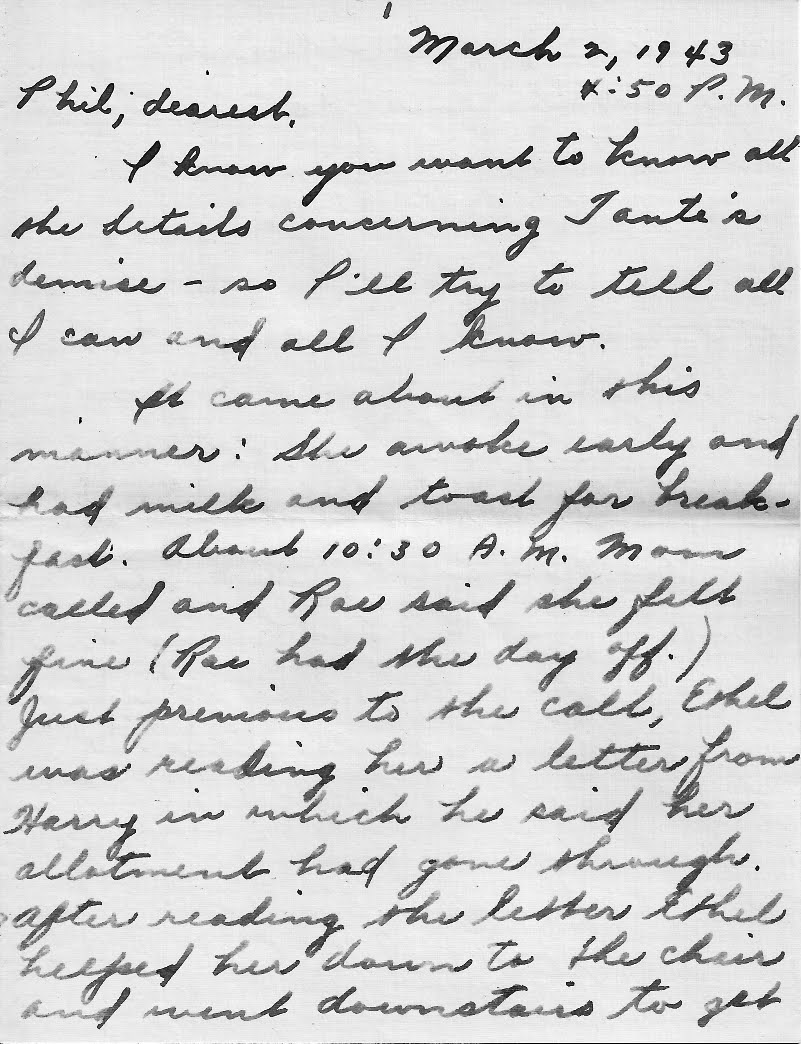 1
March 2, 1943
4:50 P.M.
Phil, dearest,
I know you want to know all
the details concerning Tante's
demise - so I'll try to tell all
I can and all I know.
It came about in this
manner: She awoke early and
had milk and toast for break-
fast. About 10:30 A.M. Mom
called and Rae said she felt
fine (Rae had the day off.)
Just previous to the call, Ethel
was reading her a letter from
Harry in which he said her
allotment had gone through.
After reading the letter Ethel
helped her down to the chair
and went downstairs to get